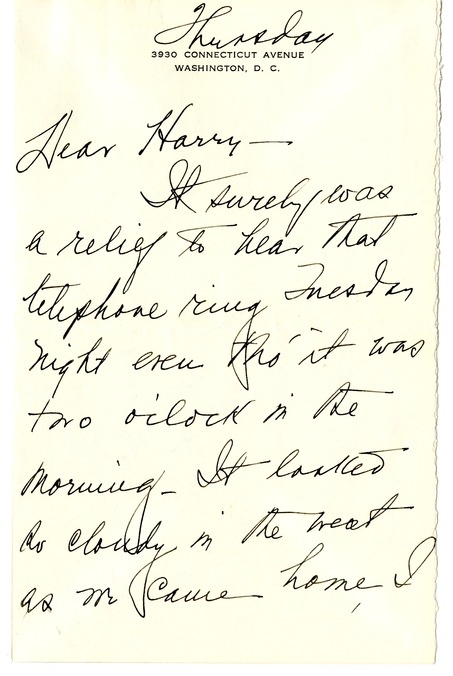 Thursday
3930 CONNECTICUT AVENUE
WASHINGTON, D. C.
Dear Harry —
It surely was
a relief to hear that
telephone ring Tuesday
night even tho' it was
two o'clock in the
morning - It looked
so cloudy in the west
as we came home, I